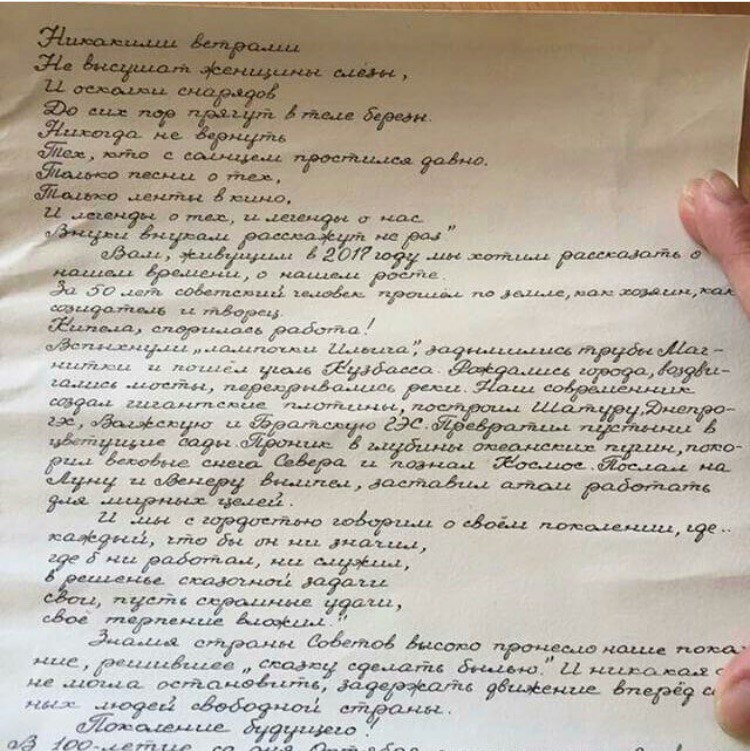 Никакими ветрами
Не высушат женщины слёзы,
И осколки снарядов
До сих пор прягут в теле березы.
Никогда не вернуть
Тех, кто с солнцем простился давно.
Только песни о тех,
Только ленты в кино,
И легенды о тех, и легенды о нас
Внуки внукам расскажут не раз"
Вам, живущим в 2017 году мы хотим рассказать о
нашем времени, о нашем росте.
За 50 лет советский человек прошёл по земле, как хозяин, как
созидатель и творец.
Кипела, спорилась работа!
Вспыхнули „лампочки Ильича", задымились трубы Маг-
нитки и пошёл уголь Кузбасса. Рождались города, воздви-
гались мосты, перекрывались реки. Наш современник
создал гигантские плотины, построил Шатуру, Днепро-
гэс, Волжскую и Братскую ГЭС. Превратил пустыни в
цветущие сады. Проник в глубины океанских пучин, поко-
рил вековые снега Севера и познал Космос. Послал на
Луну и Венеру вымпел, заставил атом работать
для мирных целей.
И мы с гордостью говорим о своём поколении, где..
каждый, что бы он ни значил,
где б ни работал, ни служил,
в решенье сказочной задачи
свои, пусть скромные удачи,
своё терпение вложил."
Знамя страны Советов высоко пронесло наше поко-
ние, решившее „сказку сделать былью." И никакая с
не могла остановить, задержать движение вперёд с
ных людей свободной страны.
Поколение будущего!
В 100-летие со дня Октября